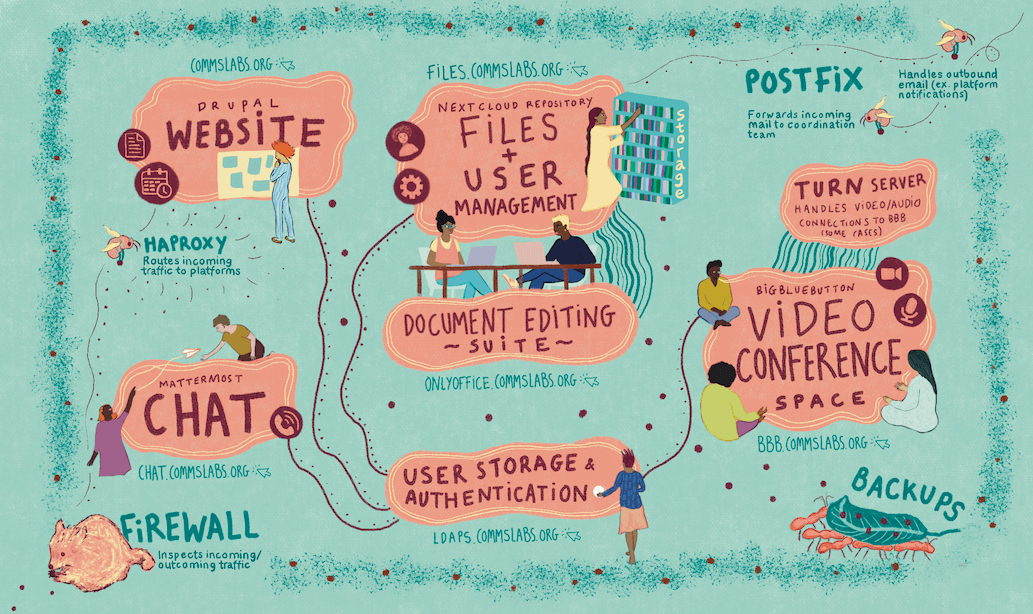 COMMSLABS.ORG
DRUPAL
WEBSITE
FILES.COMMSLABS.ORG
NEXTCLOUD REPOSITORY
FILES
+
USER
MANAGEMENT
Storage
POSTFIX
Forwards incoming
mail to coordination
team
Handles outbound
email (ex. platform
notifications)
TURN SERVER
HANDLES VIDEO/AUDIO
CONNECTIONS TO BBB
(SOME CASES)
HAPROXY
Routes incoming
traffic to platforms
DOCUMENT EDITING
~ SUITE ~
ONLYOFFICE.COMMSLABS.ORG
BIGBLUEBUTTON
VIDEO
CONFERENCE
SPACE
BBB.COMMSLABS.ORG
MATTERMOST
CHAT
CHAT.COMMSLABS.ORG
USER STORAGE &
AUTHENTICATION
LDAPS.COMMSLABS.ORG
FIREWALL
Inspects incoming/
outcoming traffic
BACKUPS